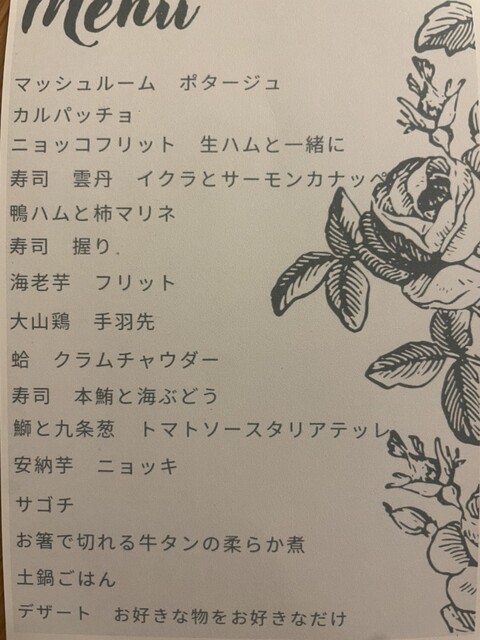 Menu
マッシュルーム　ポタージュ
カルパッチョ
ニョッコフリット　生ハムと一緒に
寿司　雲丹　イクラとサーモンカナッペ
鴨ハムと柿マリネ
寿司　握り
海老芋　フリット
大山鶏　手羽先
蛤　クラムチャウダー
寿司　本鮪と海ぶどう
鰤と九条葱　トマトソースタリアテッレ
安納芋　ニョッキ
サゴチ
お箸で切れる牛タンの柔らか煮
土鍋ごはん
デザート　お好きな物をお好きなだけ